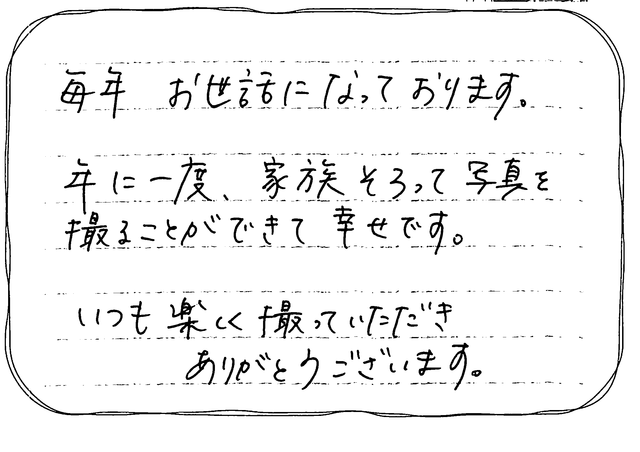 毎年 お世話になっております。
年に一度、家族そろって写真を
撮ることができて幸せです。
いつも楽しく撮っていただき
ありがとうございます。